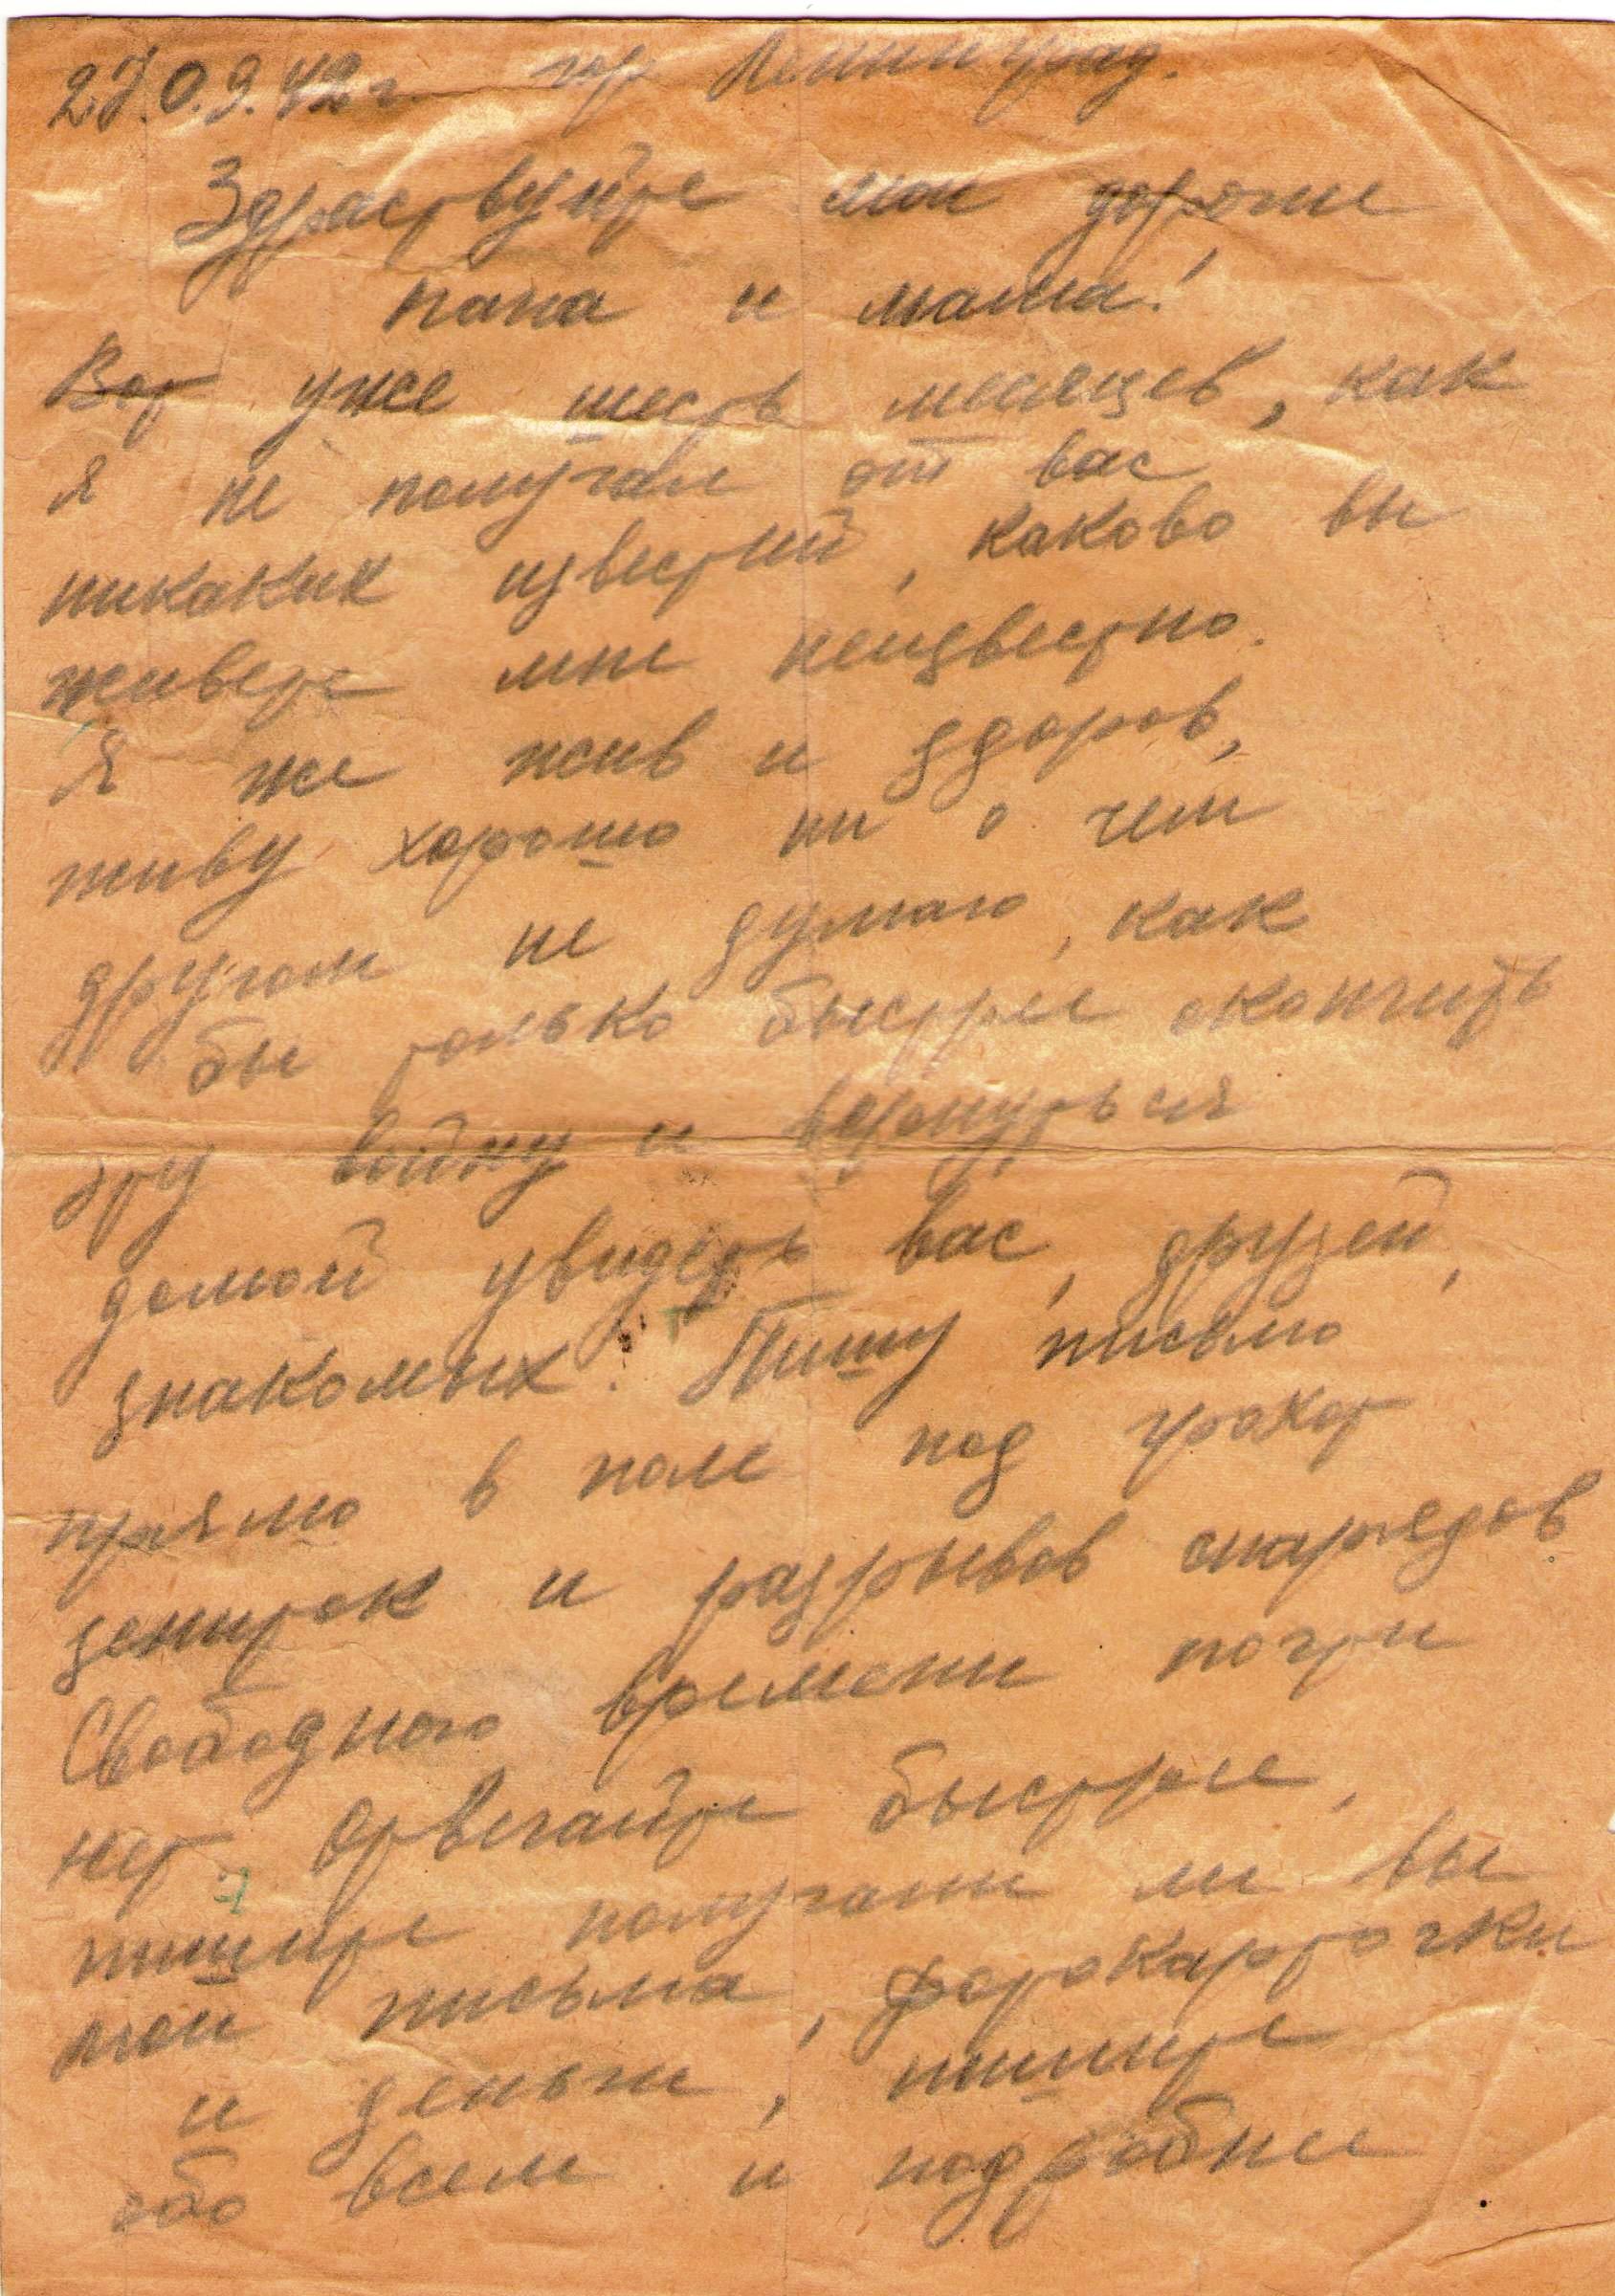 27.09.42 г. гор Ленинград.
Здраствуйте мои дорогие
папа и мама!
Вот уже шесть месяцев, как
я не получал от вас
никаких известий, каково вы
живете мне неизвестно.
Я же жив и здоров,
живу хорошо ни о чем
другом не думаю, как
бы только быстрее окончить
эту войну и вернуться
домой увидеть вас, друзей,
знакомых. Пишу письмо
прямо в поле под грохот
зениток и разрывов снарядов
Свободного времени почти
нет. Отвечайте быстрее,
пишите получали ли вы
мои письма, фотокарточки
и деньги, пишите
обо всем и подробнее